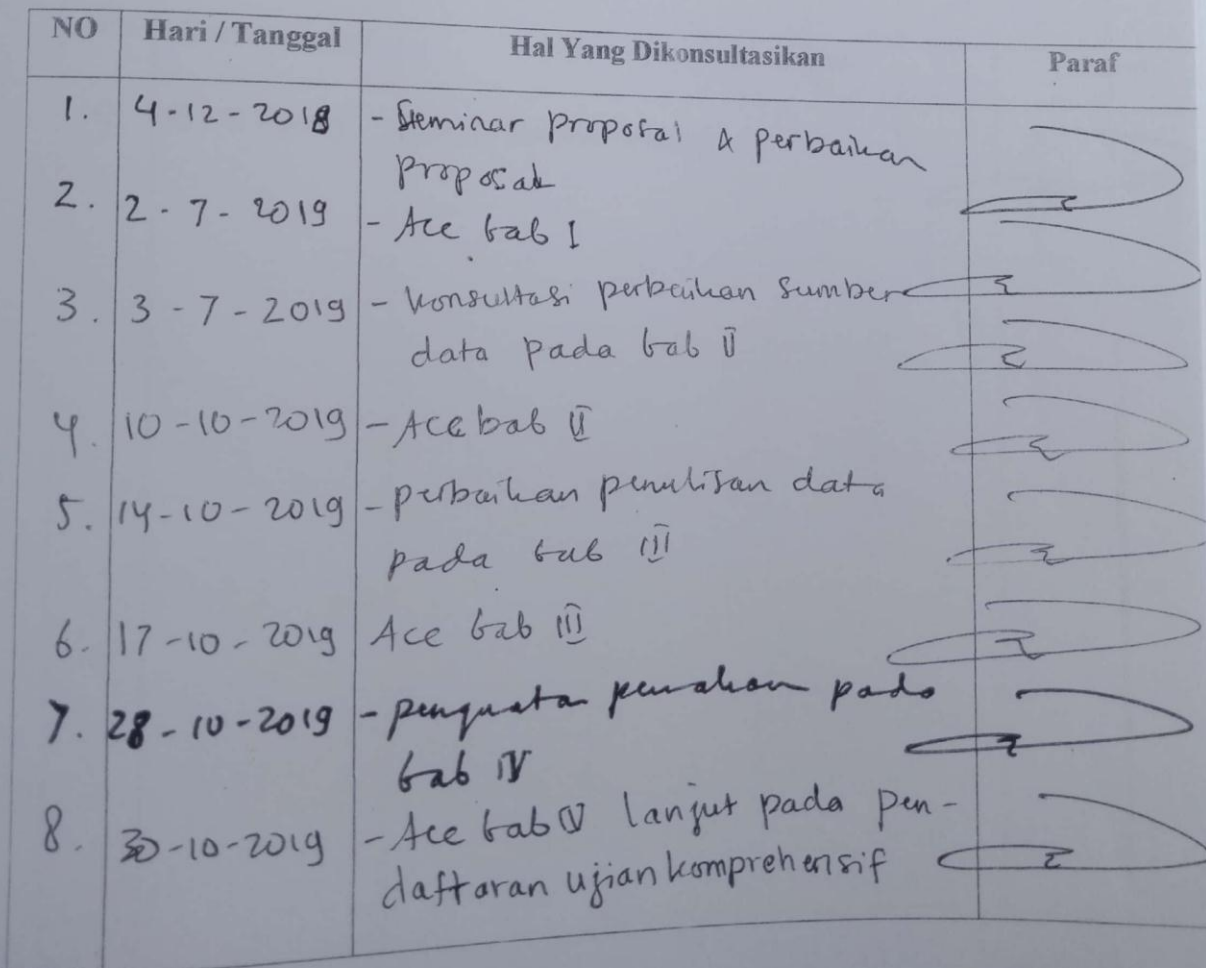 NO Hari / Tanggal Hal Yang Dikonsultasikan Paraf
1. 4-12-2018 - Seminar proposal & perbaikan
proposal
2. 2-7-2019 - Acc bab I
3. 3-7-2019 - Konsultasi perbaikan sumber
data pada bab II
4. 10-10-2019 - Acc bab II
5. 14-10-2019 - perbaikan penulisan data
pada bab III
6. 17-10-2019 Acc bab III
7. 28-10-2019 - penguata pada
bab IV
8. 30-10-2019 - Acc bab IV lanjut pada pen-
daftaran ujian komprehensif